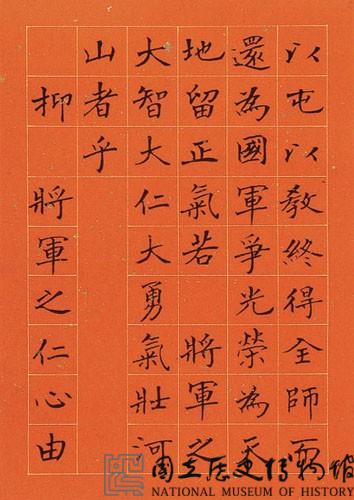 以屯以教終得全師而
還為國軍爭光榮為天
地留正氣若　將軍之
大智大仁大勇氣壯河
山者乎
抑　將軍之仁心由
國立歷史博物館
NATIONAL MUSEUM OF HISTORY